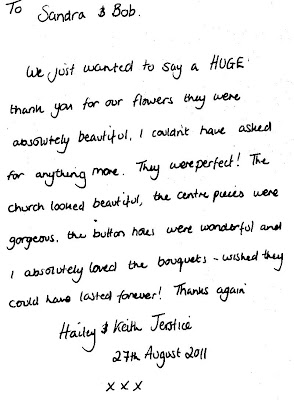 To Sandra & Bob.
We just wanted to say a HUGE
thank you for our flowers they were
absolutely beautiful, I couldn't have asked
for anything more. They were perfect! The
church looked beautiful, the centre pieces were
gorgeous, the button holes were wonderful and
I absolutely loved the bouquets - wished they
could have lasted forever! Thanks again
Hailey & Keith
27th August 2011
x x x